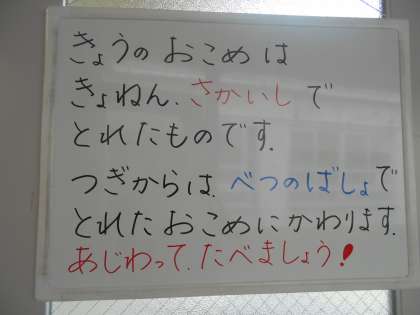 きょうの おこめ は
きょねん、さかいし で
とれたものです。
つぎからは、べつのばしょで
とれたおこめにかわります。
あじわって、たべましょう!